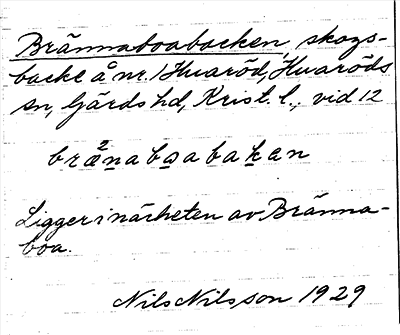 Brännaboabacken, skogs-
backe å nr. 1 Hvaröd, Hvaröds
sn, Gärds hd, Krist. l., vid 12
bræ²naboabakan
Ligger i närheten av Bränna-
boa.
Nils Nilsson 1929